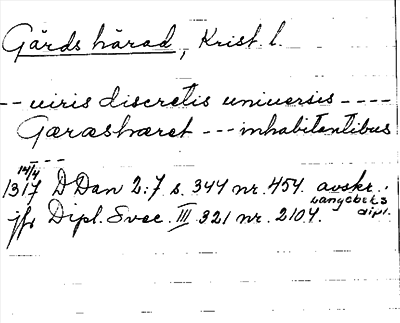 Gärds härad, Krist. l.
-- uiris discretis uniuersis ----
Gæræshæret --- inhabitantibus
---
14/4
1317 DDan 2:7 s. 344 nr. 454. avskr.
Langebeks dipl.
jfr Dipl. Svec. III 321 nr. 2104.